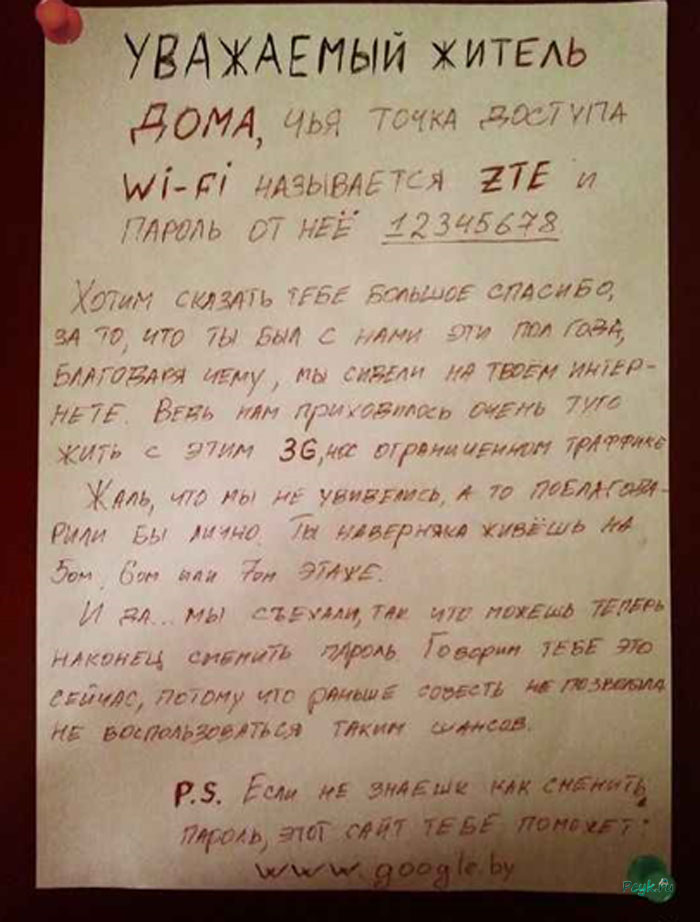 УВАЖАЕМЫЙ ЖИТЕЛЬ
ДОМА, ЧЬЯ ТОЧКА ДОСТУПА
Wi-Fi НАЗЫВАЕТСЯ ZTE и
ПАРОЛЬ ОТ НЕЁ 12345678
ХОТИМ СКАЗАТЬ ТЕБЕ БОЛЬШОЕ СПАСИБО,
ЗА ТО, ЧТО ТЫ БЫЛ С НАМИ ЭТИ ПОЛ ГОДА,
БЛАГОДАРЯ ЧЕМУ, МЫ СИДЕЛИ НА ТВОЕМ ИНТЕР-
НЕТЕ. ВЕДЬ НАМ ПРИХОДИЛОСЬ ОЧЕНЬ ТУГО
ЖИТЬ С ЭТИМ 3G, ОГРАНИЧЕННОМ ТРАФФИКЕ
ЖАЛЬ, ЧТО МЫ НЕ УВИДЕЛИСЬ, А ТО ПОБЛАГОДА-
РИЛИ БЫ ЛИЧНО. ТЫ НАВЕРНЯКА ЖИВЁШЬ НА
5ом, 6ом или 7ом ЭТАЖЕ.
И ДА... МЫ СЪЕХАЛИ, ТАК ЧТО МОЖЕШЬ ТЕПЕРЬ
НАКОНЕЦ СМЕНИТЬ ПАРОЛЬ. ГОВОРИМ ТЕБЕ ЭТО
СЕЙЧАС, ПОТОМУ ЧТО РАНЬШЕ СОВЕСТЬ НЕ ПОЗВОЛЯЛА
НЕ ВОСПОЛЬЗОВАТЬСЯ ТАКИМ ШАНСОВ.
P.S. ЕСЛИ НЕ ЗНАЕШЬ КАК СМЕНИТЬ
ПАРОЛЬ, ЭТОТ САЙТ ТЕБЕ ПОМОЖЕТ:
www.google.by